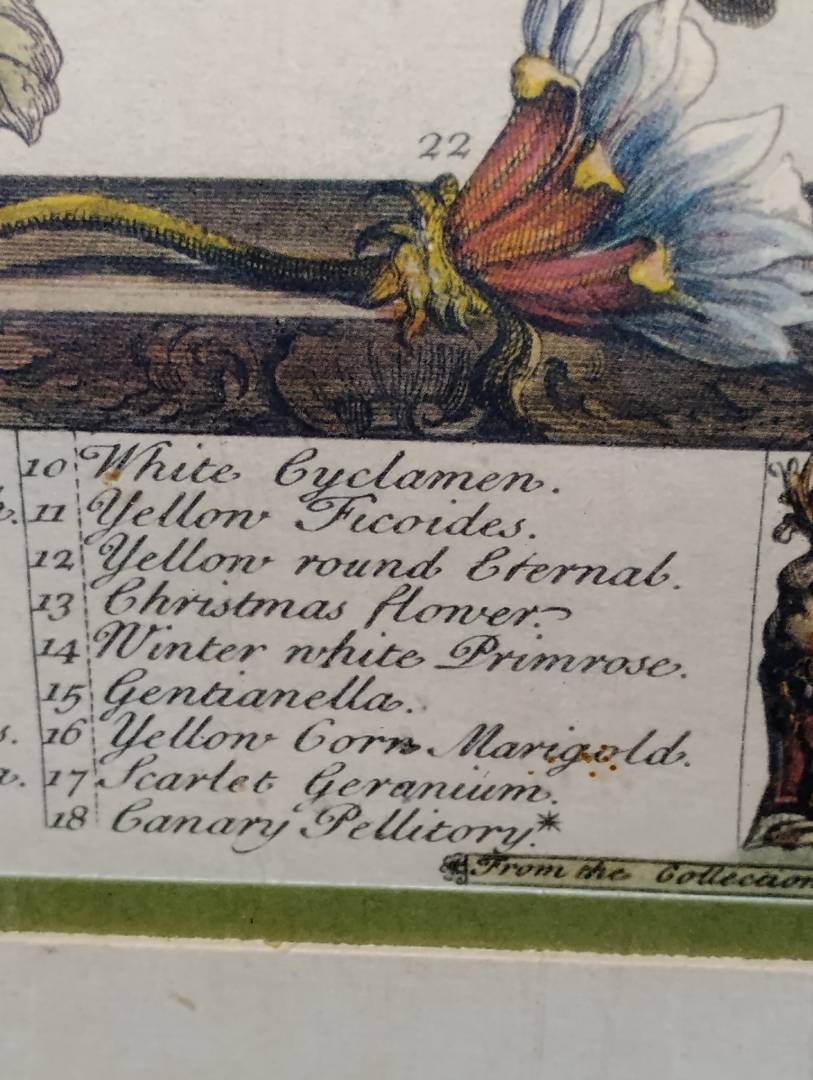 22
10 White Cyclamen.
11 Yellow Ficoides.
12 Yellow round Eternal.
13 Christmas flower.
14 Winter white Primrose.
15 Gentianella.
s. 16 Yellow Corn Marigold.
a. 17 Scarlet Geranium.
18 Canary Pellitory.*
From the Collection